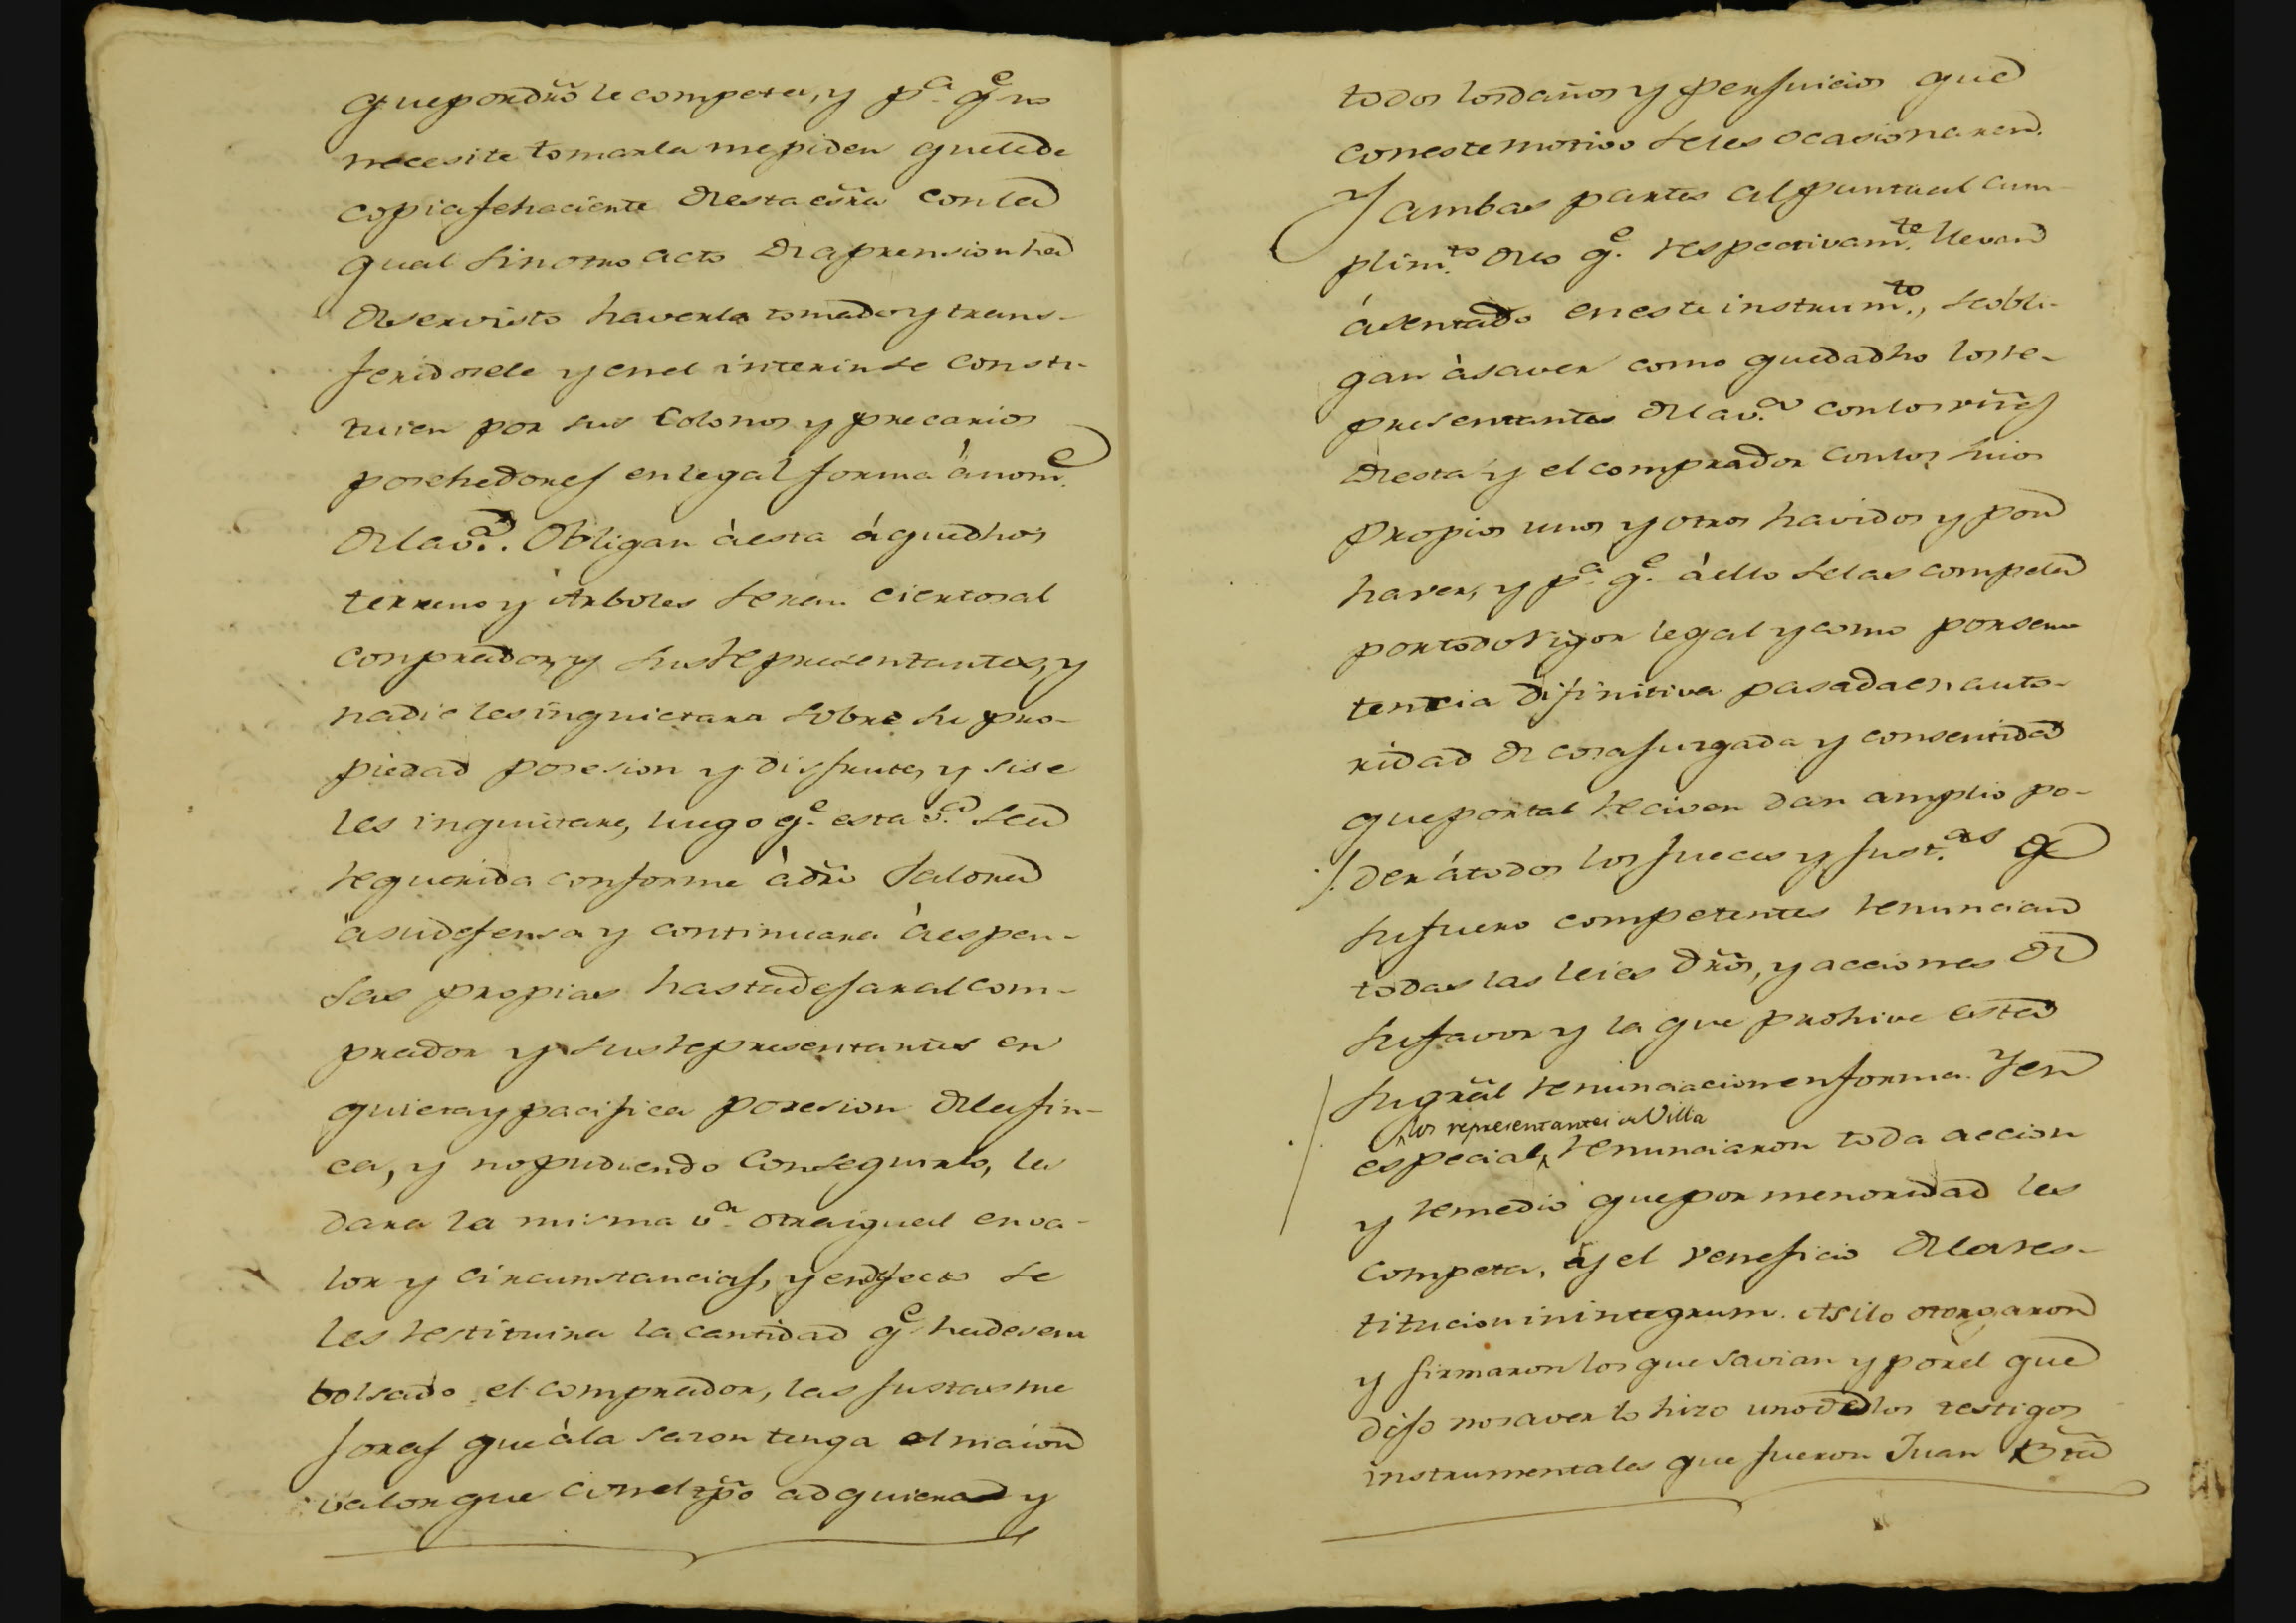 que por dro̅ le compete, y p.a q.e no
necesite tomarla me piden que le de
copia fehaciente de esta esra̅ con la
qual sin otro acto de aprension ha
de ser visto haverla tomado y trans-
feridosele y en el interin se consti-
tuien por sus Colonos y precarios
posehedores en legal forma á nom.e
de la v.a. Obligan à esta á que dhos
terreno y Arboles seran ciertos al
conprador, y sus representantes, y
nadie les inquietara sobre su pro-
piedad posesion y disfrute, y si se
les inquietare, luego q.e esta v.a sea
requerida conforme à dro̅ saldra
à su defensa y continuara à espen-
sas propias hasta dejar al com-
prador y sus representantes en
quieta y pacifica posesion de la fin-
ca, y no pudiendo conseguirlo, le
dara la misma v.a otra igual en va-
lor y circunstancias, y en defecto se
les restituira la cantidad q.e ha desem
bolsado el comprador, las justas me
joras que à la sazon tenga el maior
valor que con el tp̅o adquiera y
todos los daños y perjuicios que
con este motivo se les ocasionaren.
Y ambas partes al puntual cum-
plim.to de lo q.e respectivam.te llevan
ásentado en este instrum.to, se obli-
gan à saver como queda dho los re-
presentantes de la v.a con los vien̅es
de esta y el comprador con los suios
propios unos y otros havidos y por
haver, y p.a q.e à ello se las compela
por todo rigor legal y como por sen
tencia difinitiva pasada en auto-
ridad de cosa juzgada y consentida
que por tal reciven dan amplio po-
der á todos los jueces y just.as de
su fuero competentes renuncian
todas las leies dro̅s, y acciones de
su favor y la que prohive esta
su gra̅l renunciacion en forma. Y en
los representantes de Villa
especial, renunciaron toda accion
y remedio que por menoridad les
competa, y el veneficio de la res-
titucion in integrum. Asi lo otorgaron
y firmaron los que savian y por el que
dijo no saver lo hizo uno de los testigos
instrumentales que fueron Juan Bta̅